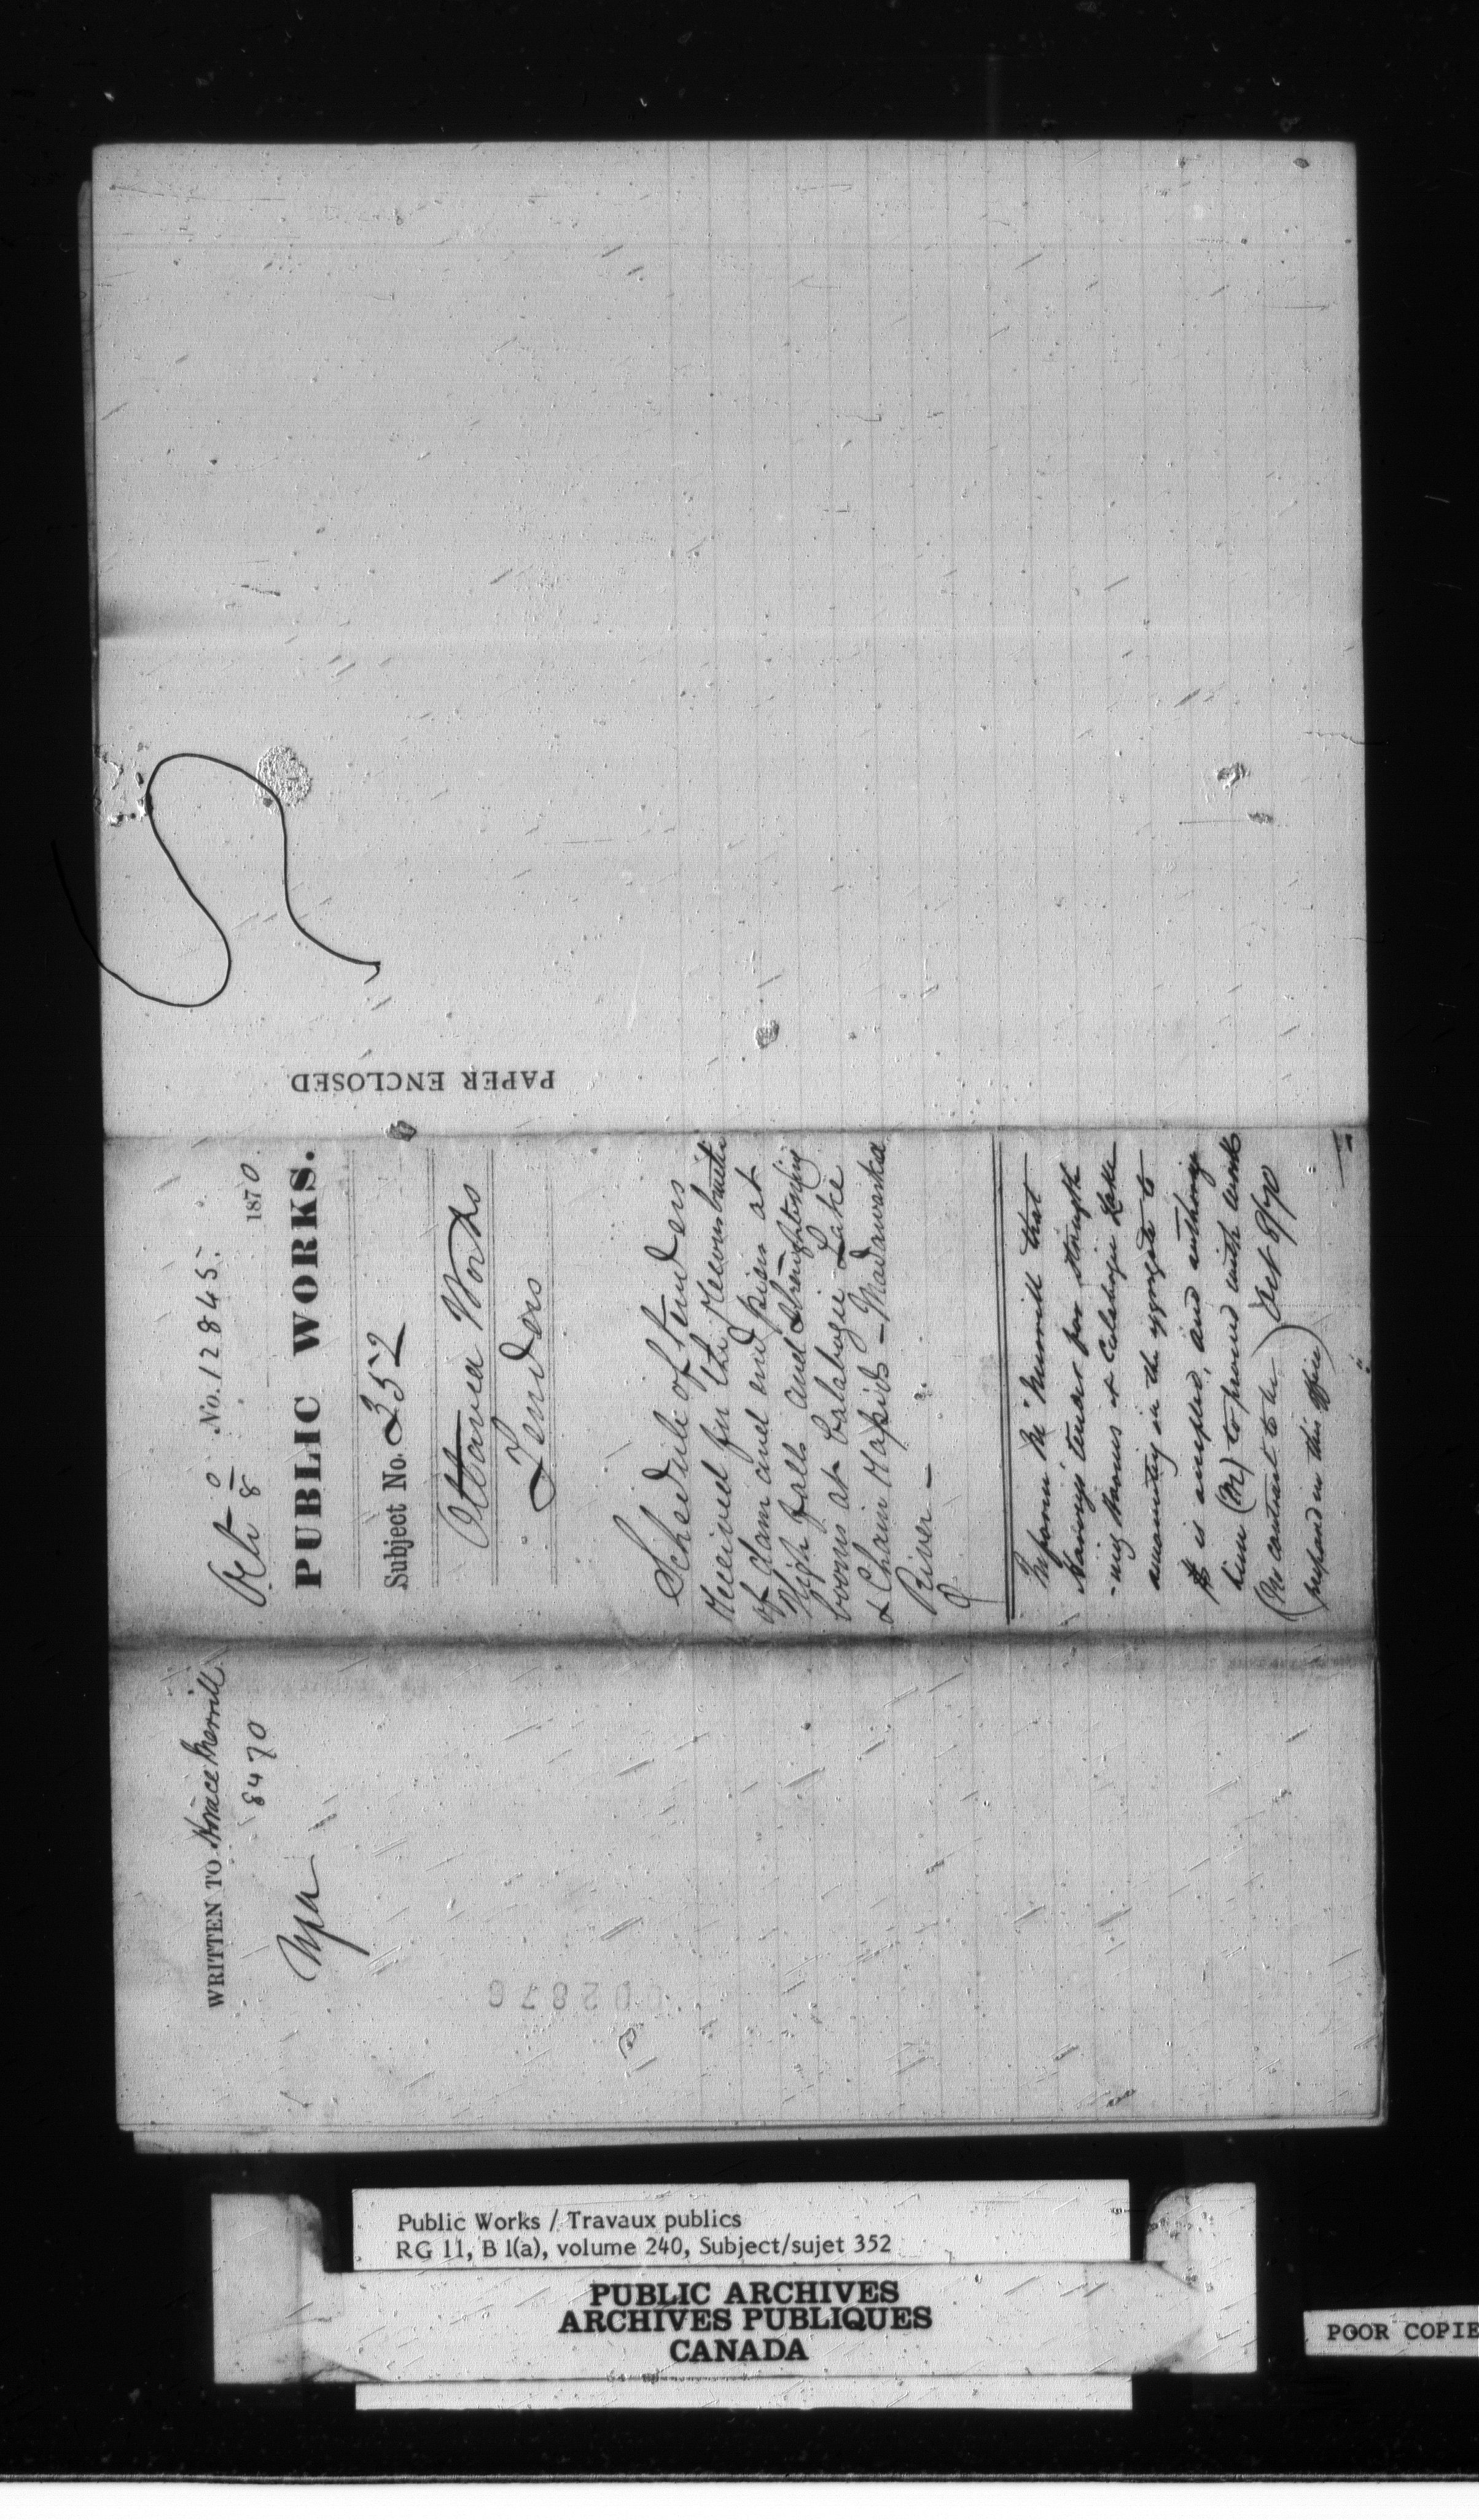 WRITTEN TO Horace Merrill
8470
Octr 8 No. 12845. 1870
PUBLIC WORKS.
Subject No. 352
Ottawa Works
Tenders
Schedule of tenders
received for the reconstructn
of dam and end piers at
High falls and strengthening
booms at Calabogie Lake
& Chain Rapids - Madawaska
River -
Inform Mr Merrill that
tender for strength
-ning booms at Calabogie Lake
amounting in the aggregate to
$ is accepted, and authorize
him (M) to proceed with work
(No contract to be
prepared in this office) Oct 8/70
PAPER ENCLOSED
002876
Public Works / Travaux publics
RG 11, B 1(a), volume 240, Subject/sujet 352
PUBLIC ARCHIVES
ARCHIVES PUBLIQUES
CANADA
POOR COPIE